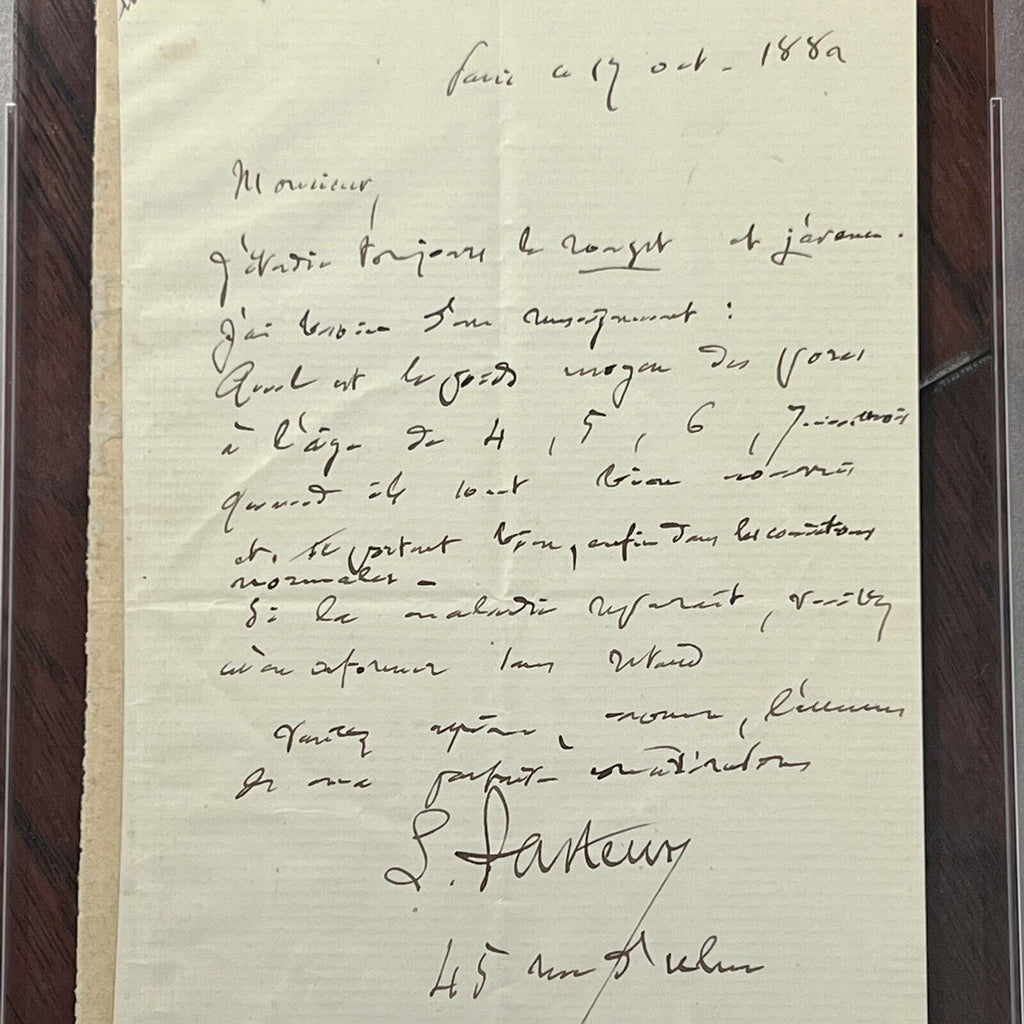 Paris ce 17 oct. 1882
Monsieur,
J'étudie toujours le rouget et j'avance.
J'ai besoin d'un renseignement :
Quel est le poids moyen des porcs
à l'âge de 4, 5, 6, 7 mois
quand ils sont bien nourris
et se portent bien, enfin dans les conditions
normales -
Si la maladie reparaît, veuillez
m'en informer sans retard
Veuillez agréer, monsieur, l'assurance
de ma parfaite considération
L. Pasteur
45 rue d'Ulm